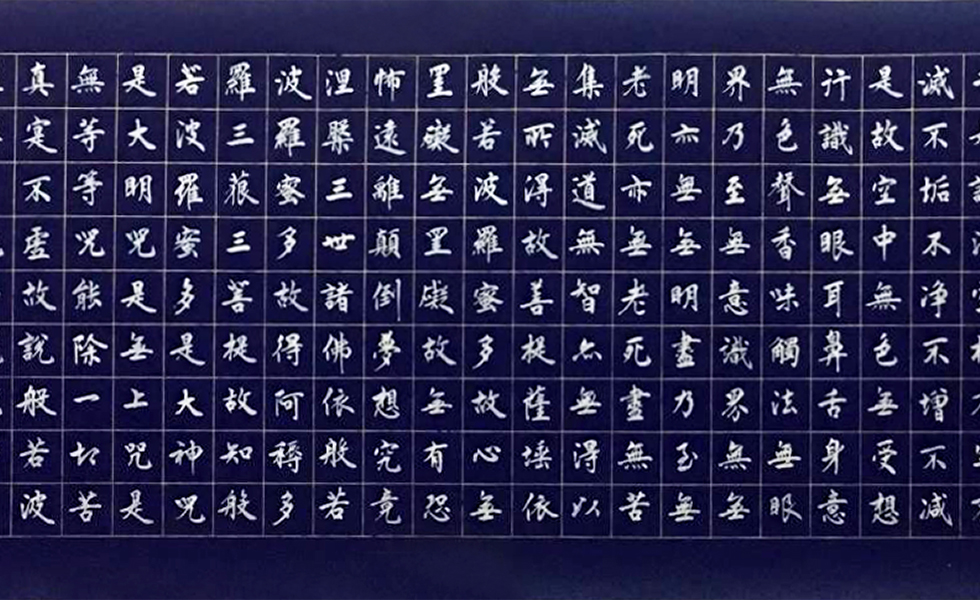 滅不垢不净不增不減
是故空中無色無受想
行識無眼耳鼻舌身意
無色聲香味觸法無眼
界乃至無意識界無無
明亦無無明盡乃至無
老死亦無老死盡無苦
集滅道無智亦無得以
無所得故菩提薩埵依
般若波羅蜜多故心無
罣礙無罣礙故無有恐
怖遠離顛倒夢想究竟
涅槃三世諸佛依般若
波羅蜜多故得阿耨多
羅三藐三菩提故知般
若波羅蜜多是大神咒
是大明咒是無上咒是
無等等咒能除一切苦
真実不虛故說般若波